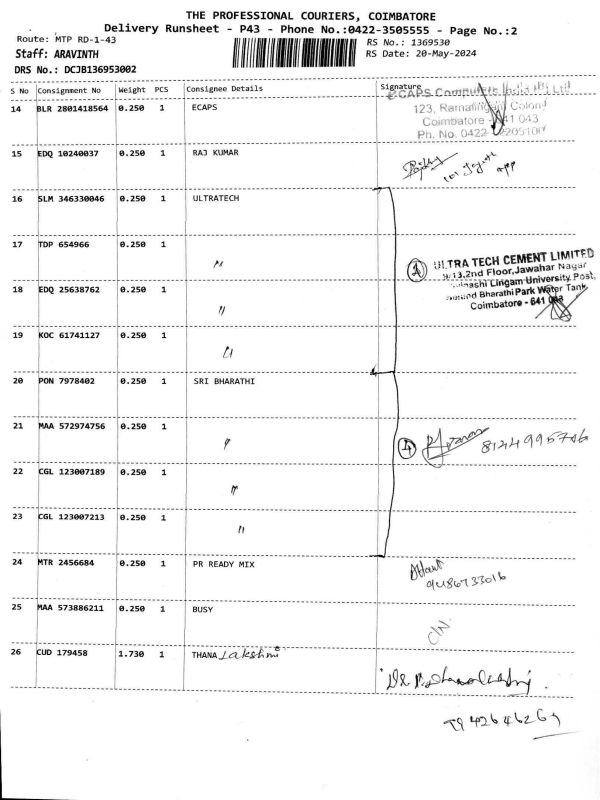 THE PROFESSIONAL COURIERS, COIMBATORE
Delivery Runsheet - P43 - Phone No.:0422-3505555 - Page No.:2
Route: MTP RD-1-43
RS No.: 1369530
Staff: ARAVINTH
RS Date: 20-May-2024
DRS No.: DCJB136953002
S No Consignment No Weight PCS Consignee Details Signature
14 BLR 2801418564 0.250 1 ECAPS
ECAPS Computers India (P) Ltd
123, Ramalingam Colony
Coimbatore - 641 043
Ph. No. 0422-2205100
15 EDQ 10240037 0.250 1 RAJ KUMAR
16 SLM 346330046 0.250 1 ULTRATECH
17 TDP 654966 0.250 1 "
18 EDQ 25638762 0.250 1 "
ULTRA TECH CEMENT LIMITED
9/13,2nd Floor,Jawahar Nagar
Lingam University Post,
Bharathi Park Water Tank
Coimbatore - 641
19 KOC 61741127 0.250 1 "
20 PON 7978402 0.250 1 SRI BHARATHI
21 MAA 572974756 0.250 1 "
4
8124995746
22 CGL 123007189 0.250 1 "
23 CGL 123007213 0.250 1 "
24 MTR 2456684 0.250 1 PR READY MIX
9486733016
25 MAA 573886211 0.250 1 BUSY
26 CUD 179458 1.730 1 THANA Lakshmi